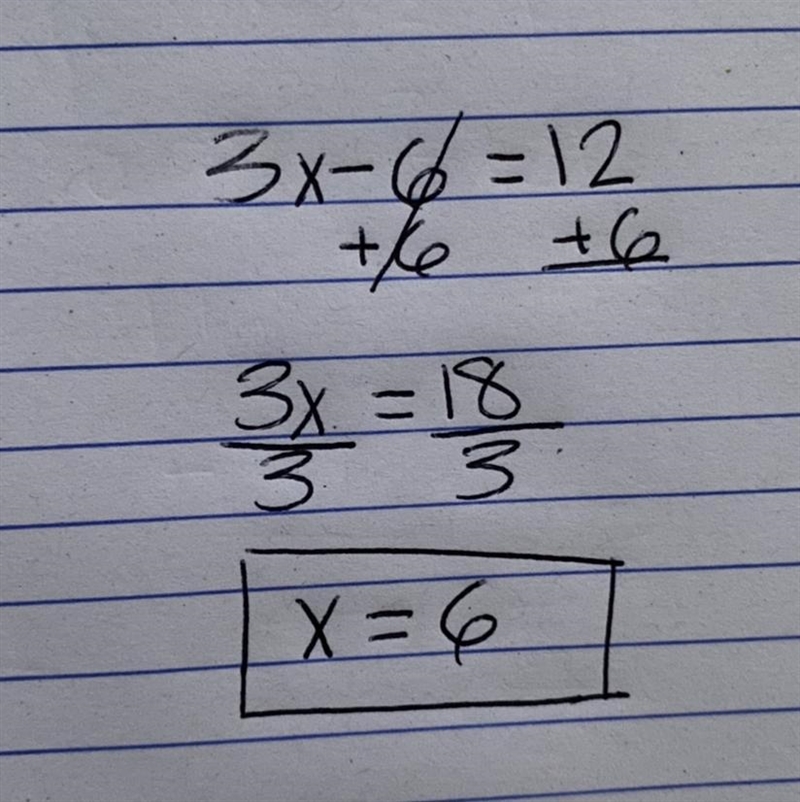 3x - 6 = 12
+6 +6
3x = 18
3 3
x = 6